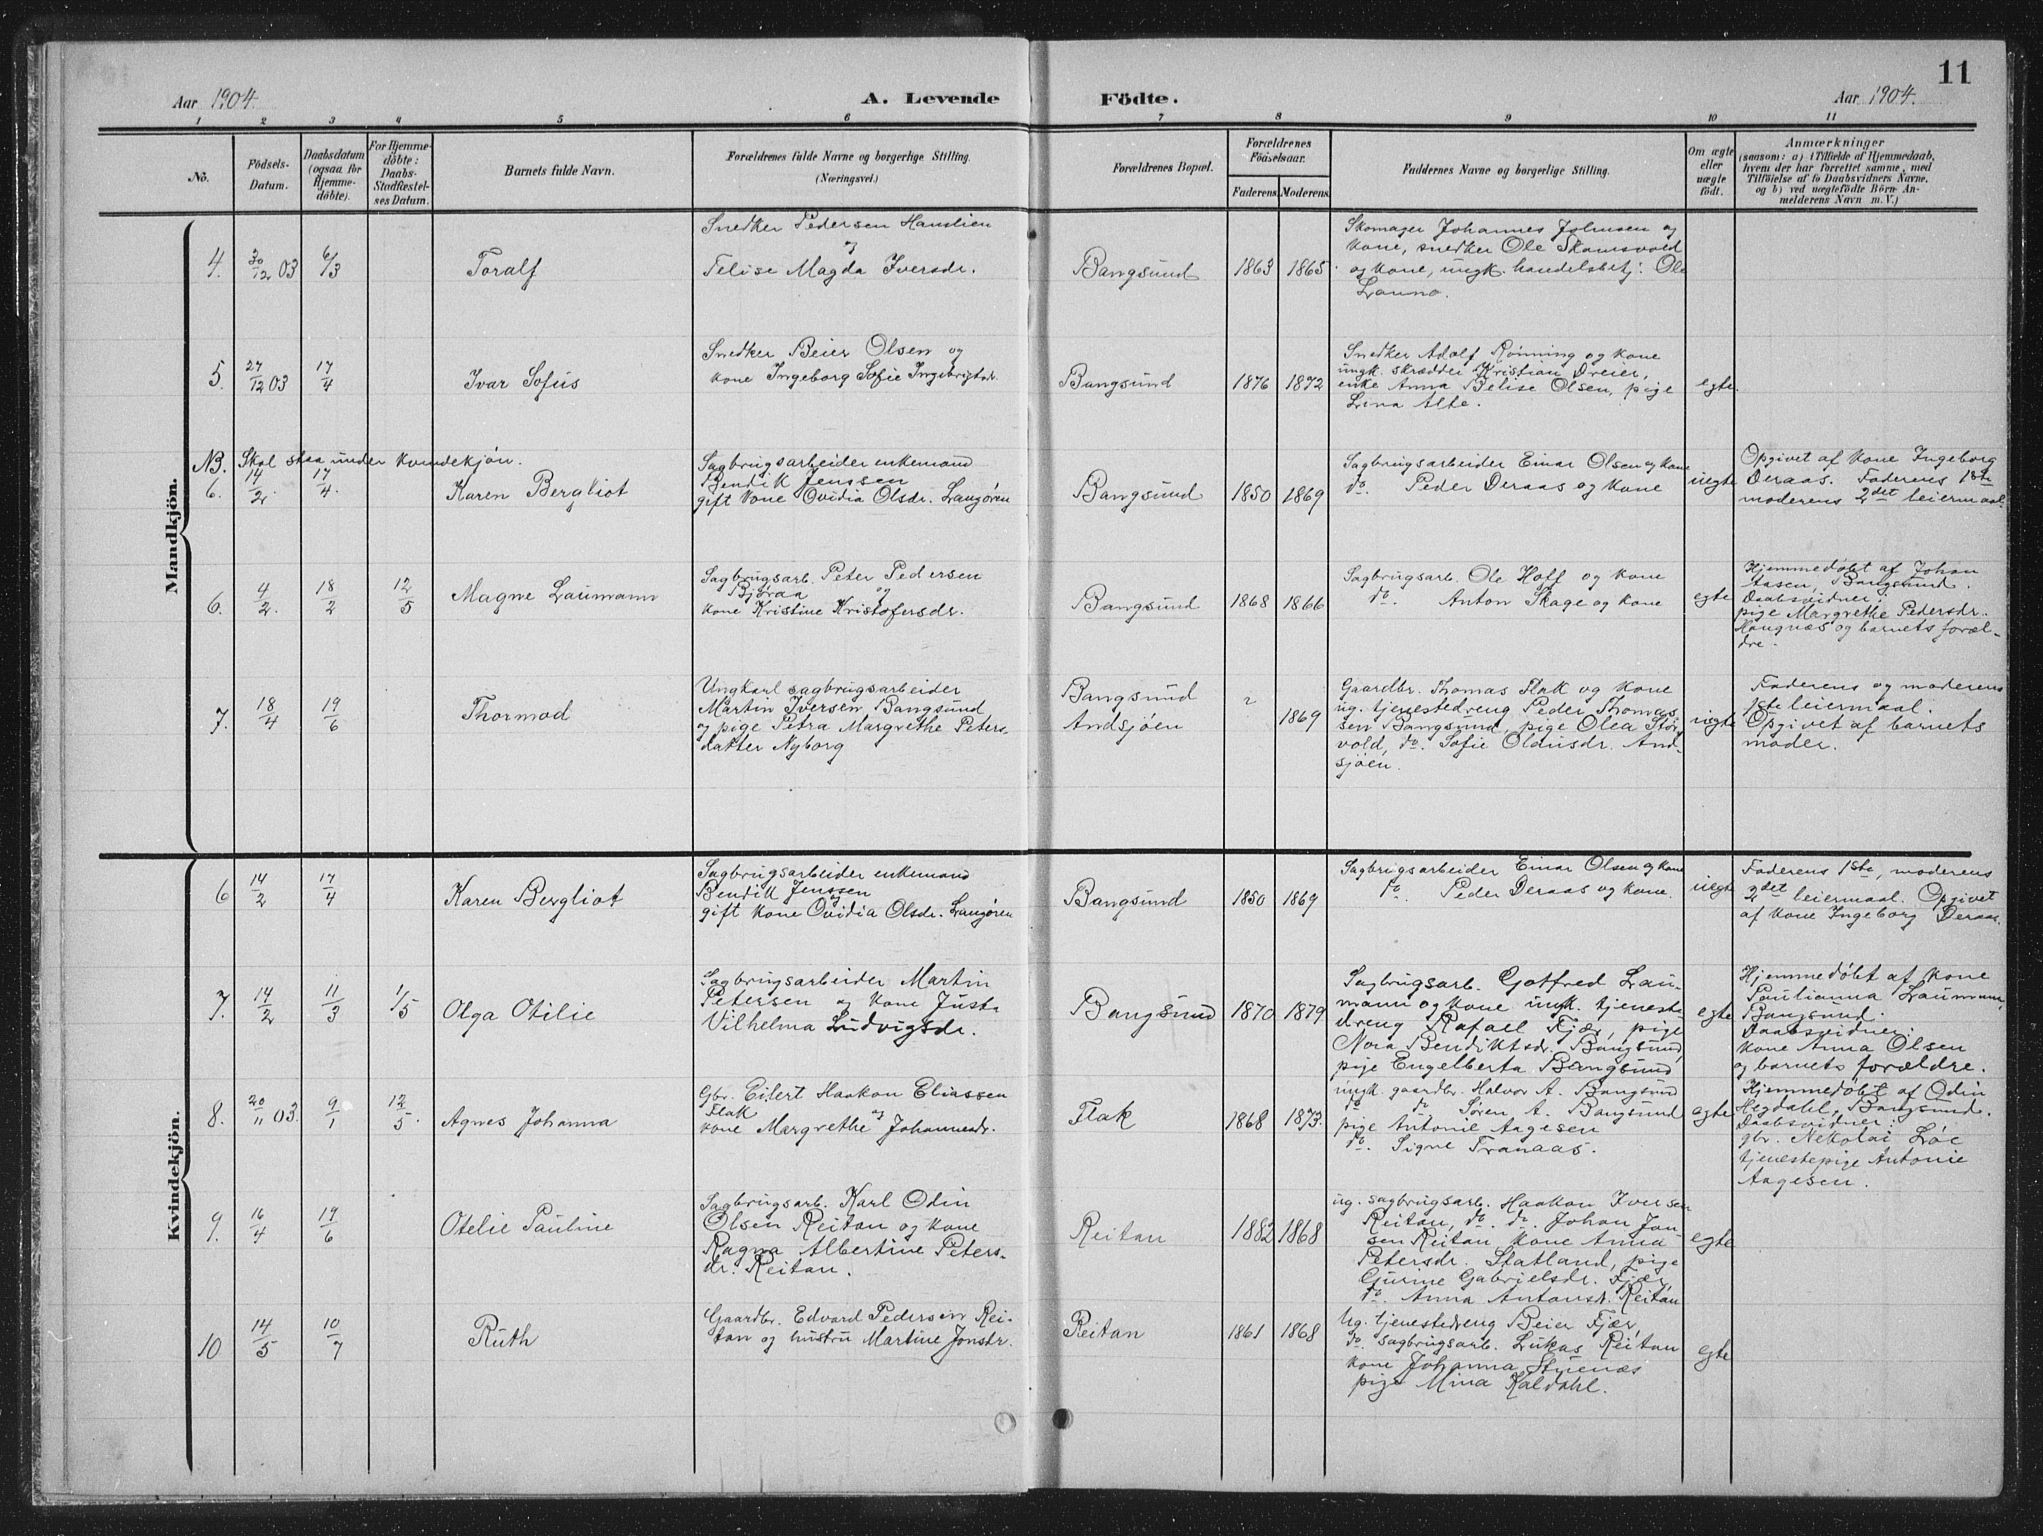 11
Aar 1904.
A. Levende Födte.
Aar 1904.
1 2 3 4 5 6 7 8 9 10 11
No.
Födsels-
Datum.
Daabsdatum
(ogsaa for
Hjemme-
döbte).
For Hjemme-
döbte:
Daabs-
Stadfæstel-
ses Datum.
Barnets fulde Navn.
Forældrenes fulde Navne og borgerlige Stilling.
(Næringsvei.)
Forældrenes Bopæl.
Forældrenes
Födselsaar.
Faderens. Moderens.
Faddernes Navne og borgerlige Stilling.
Om ægte
eller
uægte
født.
Anmærkninger
(saasom: a) i Tilfælde af Hjemmedaab,
hvem der har forrettet samme, med
Tilföielse af to Daabsvidners Navne,
og b) ved uægtefödte Börn An-
melderens Navn m. V.)
Mandkjön.
4. 30/12 03 6/3
Toralf
Snedker Pedersen Hanslien
og
Felise Magda Iversdr.
Bangsund
1863 1865
Skomager Johannes Johnsen og
kone, snedker Ole Skomsvold
og kone, ungk. handelsbetj. Ole
Launo.
5. 27/12 03 17/4
Ivar Sofus
Snedker Beier Olsen og
kone Ingeborg Sofie Ingebrigtsdr.
Bangsund
1876 1872
Snedker Adolf Rönning og kone
ungk. skrædder Kristian Dreier,
enke Anna Belise Olsen, pige
Lina Alte.
egte.
NB. Skal staa under kvindekjön.
6. 14/2. 17/4.
Karen Bergliot
Sagbrugsarbeider enkemand
Bendik Jenssen
gift kone Ovidia Olsdr. Langören
Bangsund
1850 1869
Sagbrugsarbeider Einar Olsen og kone
do. Peder Deraas og kone
uegte
Opgivet af kone Ingeborg
Deraas. Faderens 1ste
moderens 2det leiermaal.
6. 4/2. 18/2 12/5
Magne Laumann
Sagbrugsarb. Peter Pedersen
Björaa og
kone Kristine Kristofersdr.
Bangsund
1868 1866
Sagbrugsarb. Ole Hoff og kone
do. Anton Skage og kone
egte
Hjemmedöbt af Johan
Aasen, Bangsund.
Daabsvidner:
pige Margrethe Pedersdr.
Haugnæs og barnets foræl-
dre.
7. 18/4 19/6
Thormod
Ungkarl sagbrugsarbeider
Martin Iversen Bangsund
og pige Petra Margrethe Peters-
datter Nyborg
Bangsund
Andsjöen
? 1869
Gaardbr. Thomas Flak og kone
ug. tjenestedreng Peder Thomas-
sen Bangsund, pige Olea Stör-
vold, do. Sofie Oldusdr. And-
sjöen.
uegte
Faderens og moderens
1ste leiermaal.
Opgivet af barnets
moder.
Kvindekjön.
6 14/2 17/4
Karen Bergliot
Sagbrugsarbeider enkemand
Bendik Jenssen
og
gift kone Ovidia Olsdr. Langören
Bangsund
1850 1869
Sagbrugsarbeider Einar Olsen og kone
do. Peder Deraas og kone
uegte
Faderens 1ste, moderens
2det leiermaal. Opgivet
af kone Ingeborg Deraas.
7. 14/2 11/3 1/5
Olga Otilie
Sagbrugsarbeider Martin
Petersen og kone Justa
Vilhelma Ludvigsdr.
Bangsund
1870 1879
Sagbrugsarb. Gotfred Lau-
mann og kone ungk. tjeneste
dreng Rafael Fjær, pige
Nora Bendiktsdr. Bangsund
pige Engelberta Bangsund
egte
Hjemmedöbt af kone
Paulianna Laumann,
Bangsund.
Daabsvidner:
kone Anna Olsen
og barnets forældre.
8. 20/11 03. 9/1 12/5.
Agnes Johanna
Gbr. Eilert Haakon Eliassen
Flak og
kone Margrethe Johannesdr.
Flak
1868 1873.
ungk. gaardbr. Halvor A. Bangsund
do do Sören A. Bangsund
pige Antonie Aagesen
do. Signe Tranaas.
egte
Hjemmedöbt af Odin
Hegdahl, Bangsund.
Daabsvidner:
gbr. Nekolai Löe
tjenestepige Antonie
Aagesen.
9. 16/4 19/6
Otelie Pauline
Sagbrugsarb. Karl Odin
Olsen Reitan og kone
Ragna Albertine Peters-
dr. Reitan.
Reitan
1882 1868
ug. sagbrugsarb. Haakon Iversen
Reitan, do. do. Johan Jan-
sen Reitan, kone Anna
Petersdr. Statland, pige
Gurine Gabrielsdr. Fjær,
do. Anna Antonsdr. Reitan
egte
10 14/5 10/7
Ruth
Gaardbr. Edvard Pedersen Rei-
tan og hustru Martine Jonsdr.
Reitan
1861 1868
Ug. tjenestedreng Beier Fjær,
do. sagbrugsarb. Lukas Reitan
kone Johanna Stuenæs
pige Mina Kaldahl.
egte